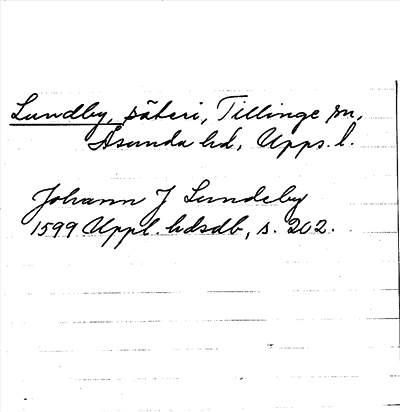 Lundby, säteri, Tillinge sn,
Åsunda hd, Upps. l.
Johann J Lundeby
1599 Uppl. hdsdb, s. 202.